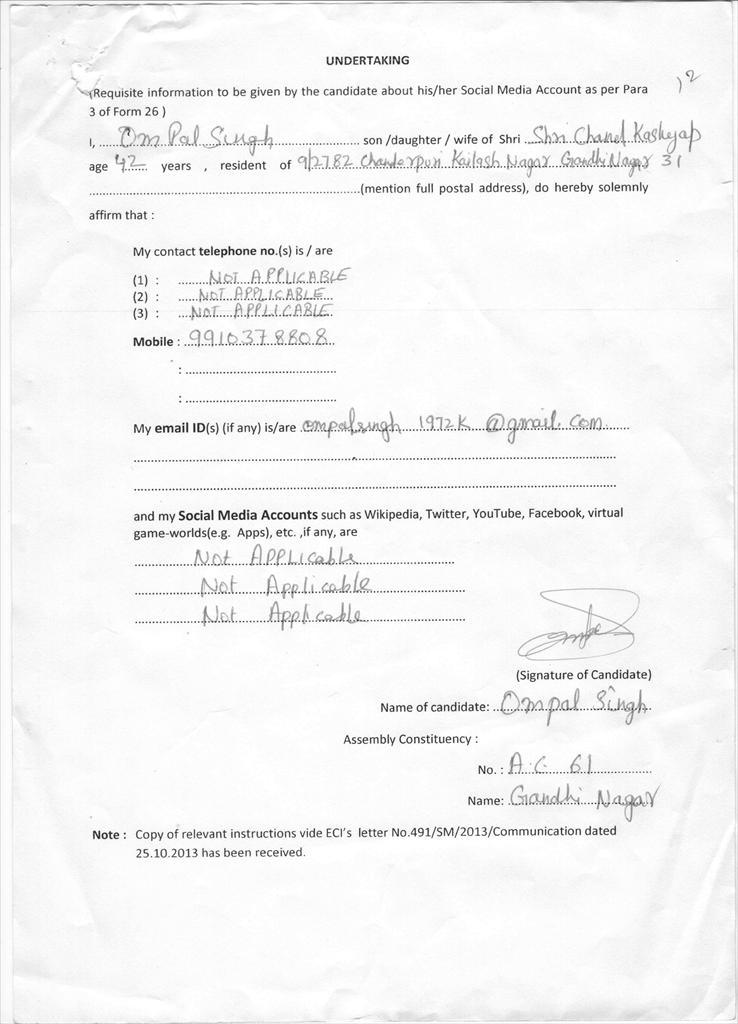 UNDERTAKING
(Requisite information to be given by the candidate about his/her Social Media Account as per Para
3 of Form 26 )
I, Om Pal Singh son /daughter / wife of Shri Shri Chand Kashyap
age 42 years , resident of 9/2782 Chanderpuri Kailash Nagar Gandhi Nagar 31
(mention full postal address), do hereby solemnly
affirm that :
My contact telephone no.(s) is / are
(1) : NOT APPLICABLE
(2) : NOT APPLICABLE
(3) : NOT APPLICABLE
Mobile : 9910378808
:
:
My email ID(s) (if any) is/are ompalsingh 1972K @gmail.com
and my Social Media Accounts such as Wikipedia, Twitter, YouTube, Facebook, virtual
game-worlds(e.g. Apps), etc. ,if any, are
Not APPLicable
Not Applicable
Not Applicable
(Signature of Candidate)
Name of candidate: Ompal Singh
Assembly Constituency :
No. : A.C. 61
Name: Gandhi Nagar
Note : Copy of relevant instructions vide ECI's letter No.491/SM/2013/Communication dated
25.10.2013 has been received.